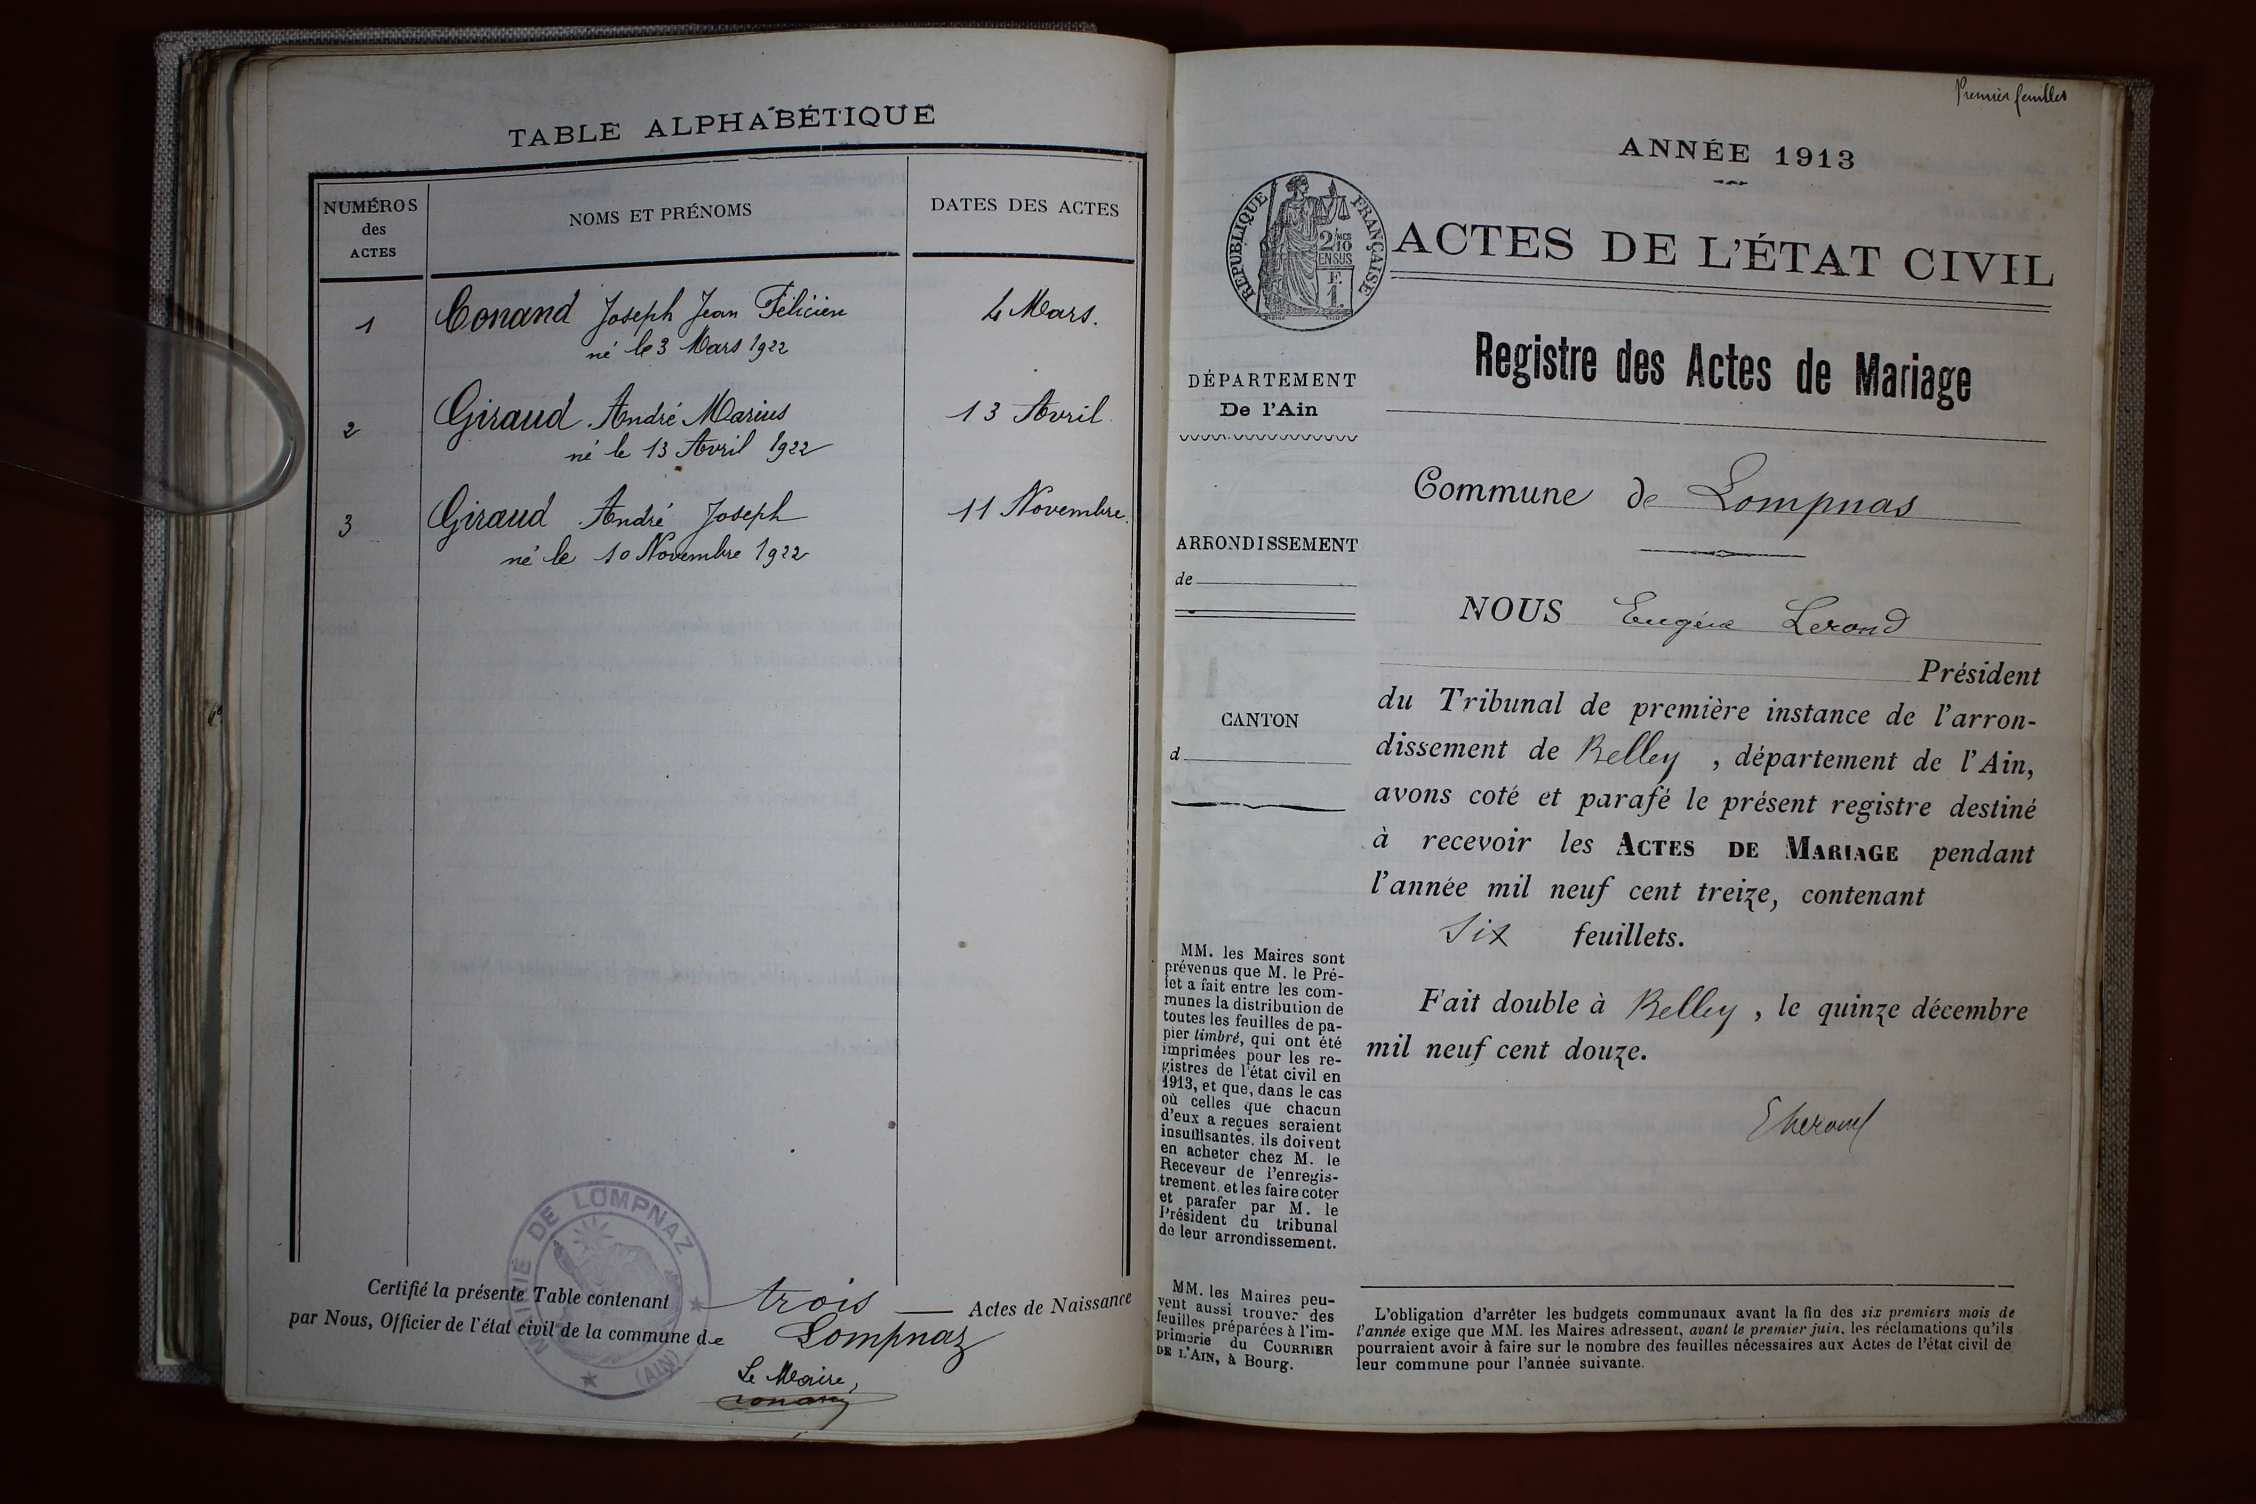 TABLE ALPHABÉTIQUE
NUMÉROS
des
ACTES
NOMS ET PRÉNOMS
DATES DES ACTES
1
Conand Joseph Jean Félicien
4 Mars.
né le 3 Mars 1922
2
Giraud André Marius
13 Avril
né le 13 Avril 1922
3
Giraud André Joseph
11 Novembre.
né le 10 Novembre 1922
MAIRIE DE LOMPNAZ
(AIN)
Certifié la présente Table contenant trois Actes de Naissance
par Nous, Officier de l'état civil de la commune de Lompnaz
Le Maire,
Conand
Premier feuillet
ANNÉE 1913
RÉPUBLIQUE FRANÇAISE
2/10
EN SUS
F.
1.
ACTES DE L'ÉTAT CIVIL
Registre des Actes de Mariage
DÉPARTEMENT
De l'Ain
ARRONDISSEMENT
de
CANTON
d
MM. les Maires sont
prévenus que M. le Pré-
fet a fait entre les com-
munes la distribution de
toutes les feuilles de pa-
pier timbré, qui ont été
imprimées pour les re-
gistres de l'état civil en
1913, et que, dans le cas
où celles que chacun
d'eux a reçues seraient
insuffisantes, ils doivent
en acheter chez M. le
Receveur de l'enregis-
trement, et les faire coter
et parafer par M. le
Président du tribunal
de leur arrondissement.
MM. les Maires peu-
vent aussi trouver des
feuilles préparées à l'im-
primerie du COURRIER
DE L'AIN, à Bourg.
Commune de Lompnas
NOUS Eugène Lerond
Président
du Tribunal de première instance de l'arron-
dissement de Belley, département de l'Ain,
avons coté et parafé le présent registre destiné
à recevoir les ACTES DE MARIAGE pendant
l'année mil neuf cent treize, contenant
Six feuillets.
Fait double à Belley, le quinze décembre
mil neuf cent douze.
L'obligation d'arrêter les budgets communaux avant la fin des six premiers mois de
l'année exige que MM. les Maires adressent, avant le premier juin, les réclamations qu'ils
pourraient avoir à faire sur le nombre des feuilles nécessaires aux Actes de l'état civil de
leur commune pour l'année suivante.